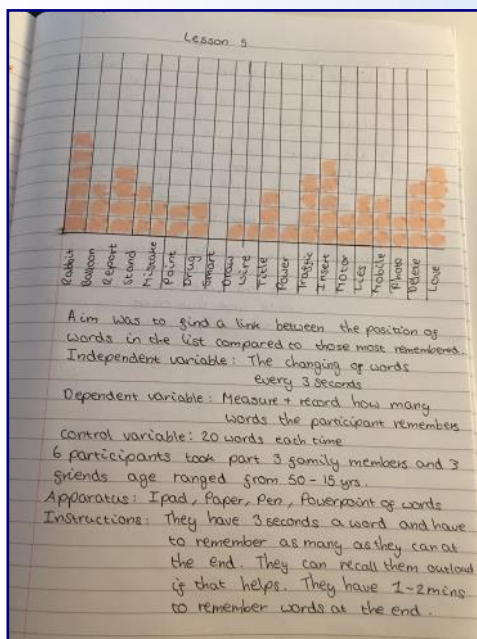 Lesson 5
Rabbit
Balloon
Report
Stand
Mistake
Paint
Drug
Smart
Draw
Wire
Title
Power
Traffic
Insert
Motor
Lies
Mobile
Photo
Delete
Love
Aim was to find a link between the position of
words in the list compared to those most remembered.
Independent variable: The changing of words
every 3 seconds
Dependent variable: Measure + record how many
words the participant remembers
control variable: 20 words each time
6 participants took part 3 family members and 3
friends age ranged from 50-15 yrs.
Apparatus: Ipad, Paper, Pen, Powerpoint of words
Instructions: They have 3 seconds a word and have
to remember as many as they can at
the end. They can recall them outloud
if that helps. They have 1-2mins
to remember words at the end.